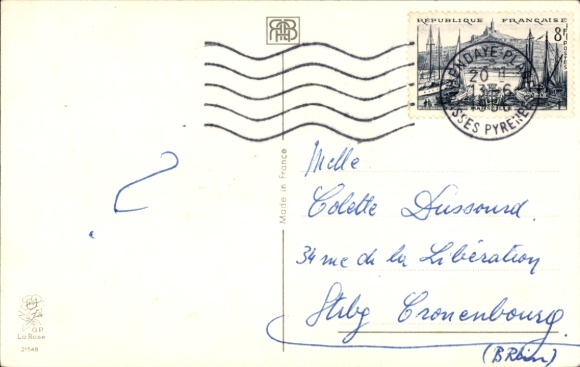 RÉPUBLIQUE FRANÇAISE
8F
POSTES
HENDAYE-PLAGE
20 H
13-6
1956
BSSES PYRENEES
?
Made in France
Melle
Colette Dussourd.
34 rue de la Libération
Stbg Cronenbourg.
(B Rhin)
G.P
La Rose
21548